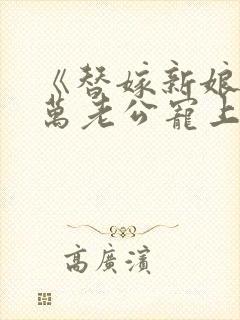 《替嫁新娘
萬老公寵上
高廣濱